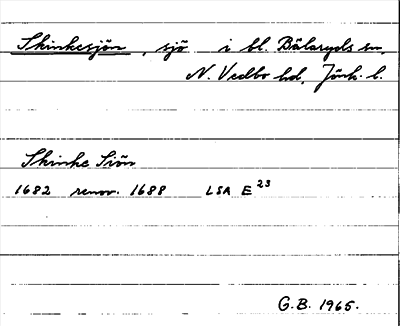 Skinkesjön, sjö i bl. Bälaryds sn,
N. Vedbo hd, Jönk. l.
Skinke Siön
1682 renov. 1688 LSA E 23
G.B. 1965.